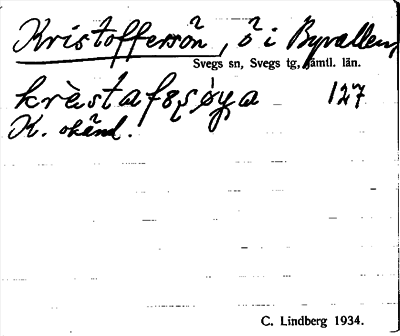 Kristoffersön, ö i Byvallen,
Svegs sn, Svegs tg, Jämtl. län.
127
K. okänd.
C. Lindberg 1934.